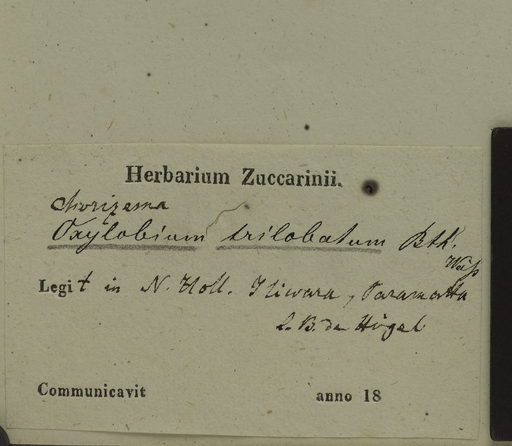 Herbarium Zuccarinii.
Chorizema
Oxylobium trilobatum Bth.
Legit in N. Holl. Iliwara, Paramatta
l. B. de Hügel
Communicavit anno 18